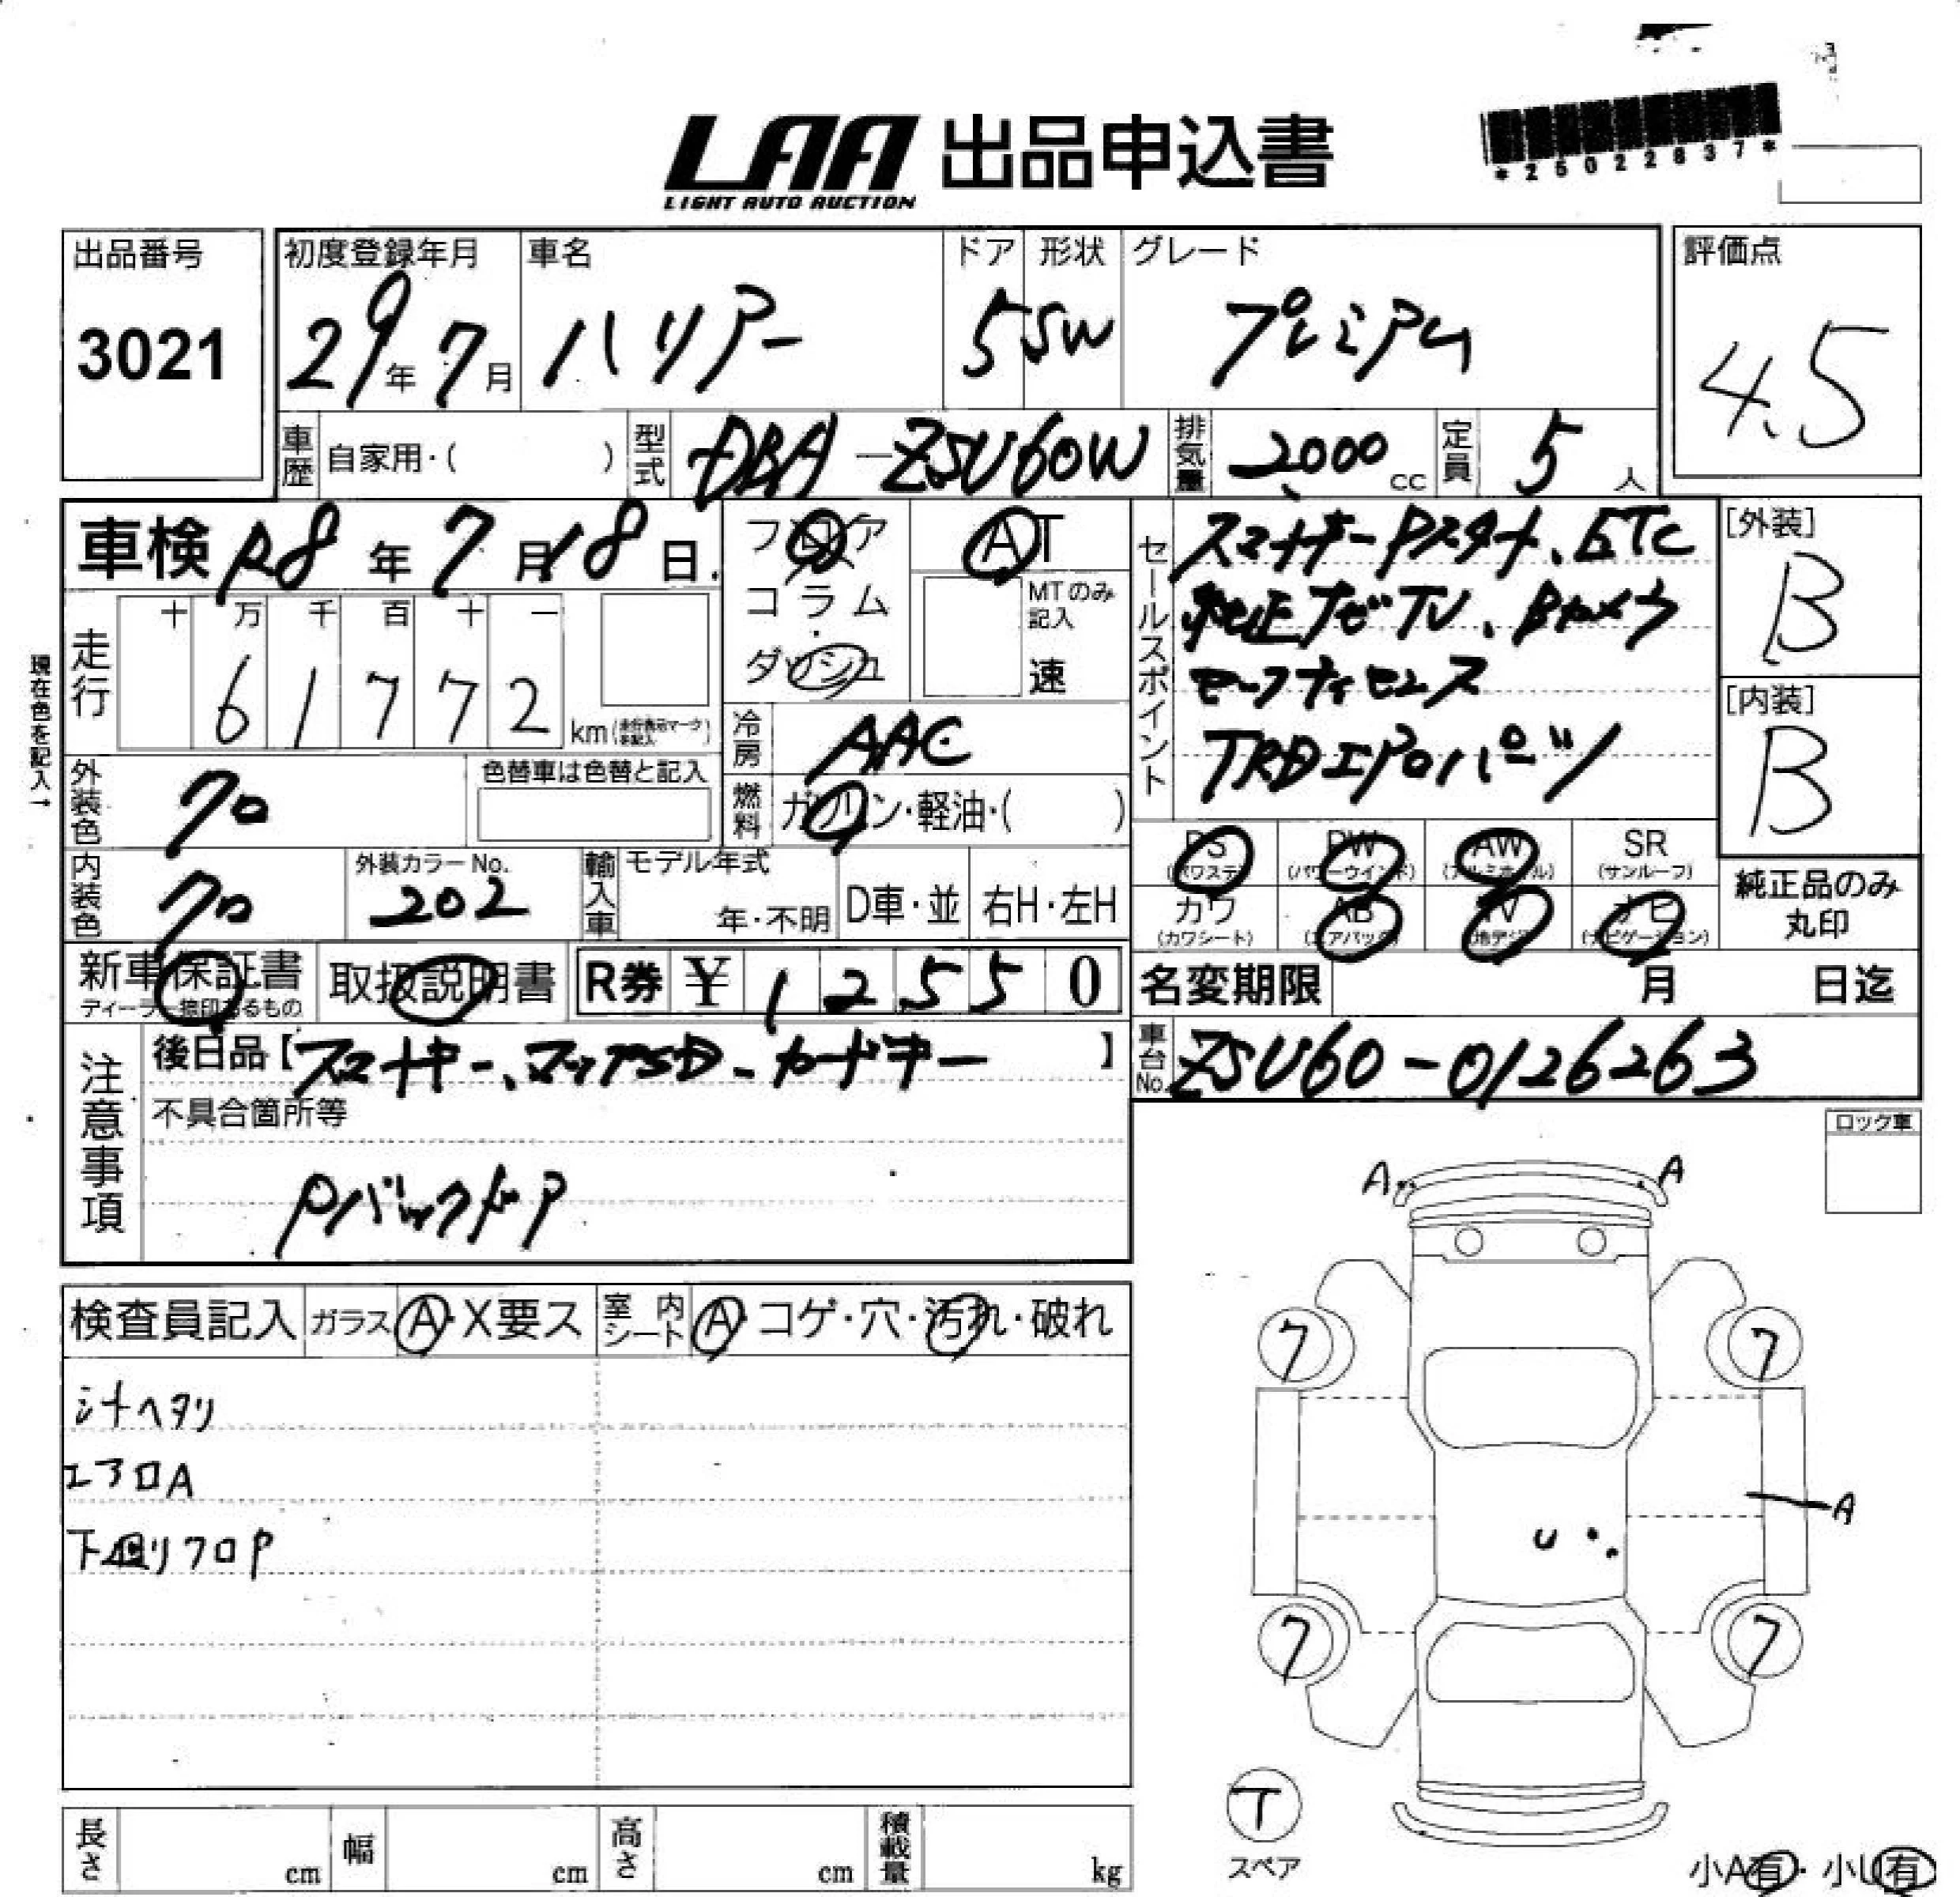 LAA 出品申込書
LIGHT AUTO AUCTION
*25022837*
出品番号
3021
初度登録年月
29年7月
車名
ハリアー
ドア
5
形状
SW
グレード
プレミアム
評価点
4.5
車歴 自家用・( )
型式 DBA-ZSU60W
排気量 2000 cc
定員 5 人
車検 R8年7月18日
フロア
コラム
ダッシュ
AT
MTのみ記入
速
セールスポイント
スマートキー Pスタート、ETC
純正ナビTV、Bカメラ
セーフティセンス
TRDエアロパーツ
[外装]
B
[内装]
B
現在色を記入→
走行
十 万 千 百 十 一
6 1 7 7 2 km
冷房 AAC
燃料 ガソリン・軽油・( )
外装色 クロ
色替車は色替と記入
内装色 クロ
外装カラーNo.
202
輸入車
モデル年式
年・不明
D車・並
右H・左H
PS (パワステ)
PW (パワーウインド)
AW (アルミホイル)
SR (サンルーフ)
カワ (カワシート)
AB (エアバック)
TV (地デジ)
ナビ (ナビゲーション)
純正品のみ丸印
新車保証書
ディーラー捺印あるもの
取扱説明書
R券 ¥ 1 2 5 5 0
名変期限 月 日迄
注意事項
後日品【スマートキー、マップSD、カードキー】
車台No. ZSU60-0126263
不具合箇所等
Pバックドア
ロック車
検査員記入
ガラス A・X要ス
室内シート A・コゲ・穴・汚れ・破れ
シートヘタリ
エアロA
下回リクロP
A A
7 7
A
U
7 7
T
スペア
長さ cm
幅 cm
高さ cm
積載量 kg
小A有・小U有